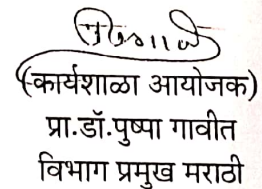 (कार्यशाळा आयोजक)
प्रा.डॉ.पुष्पा गावीत
विभाग प्रमुख मराठी